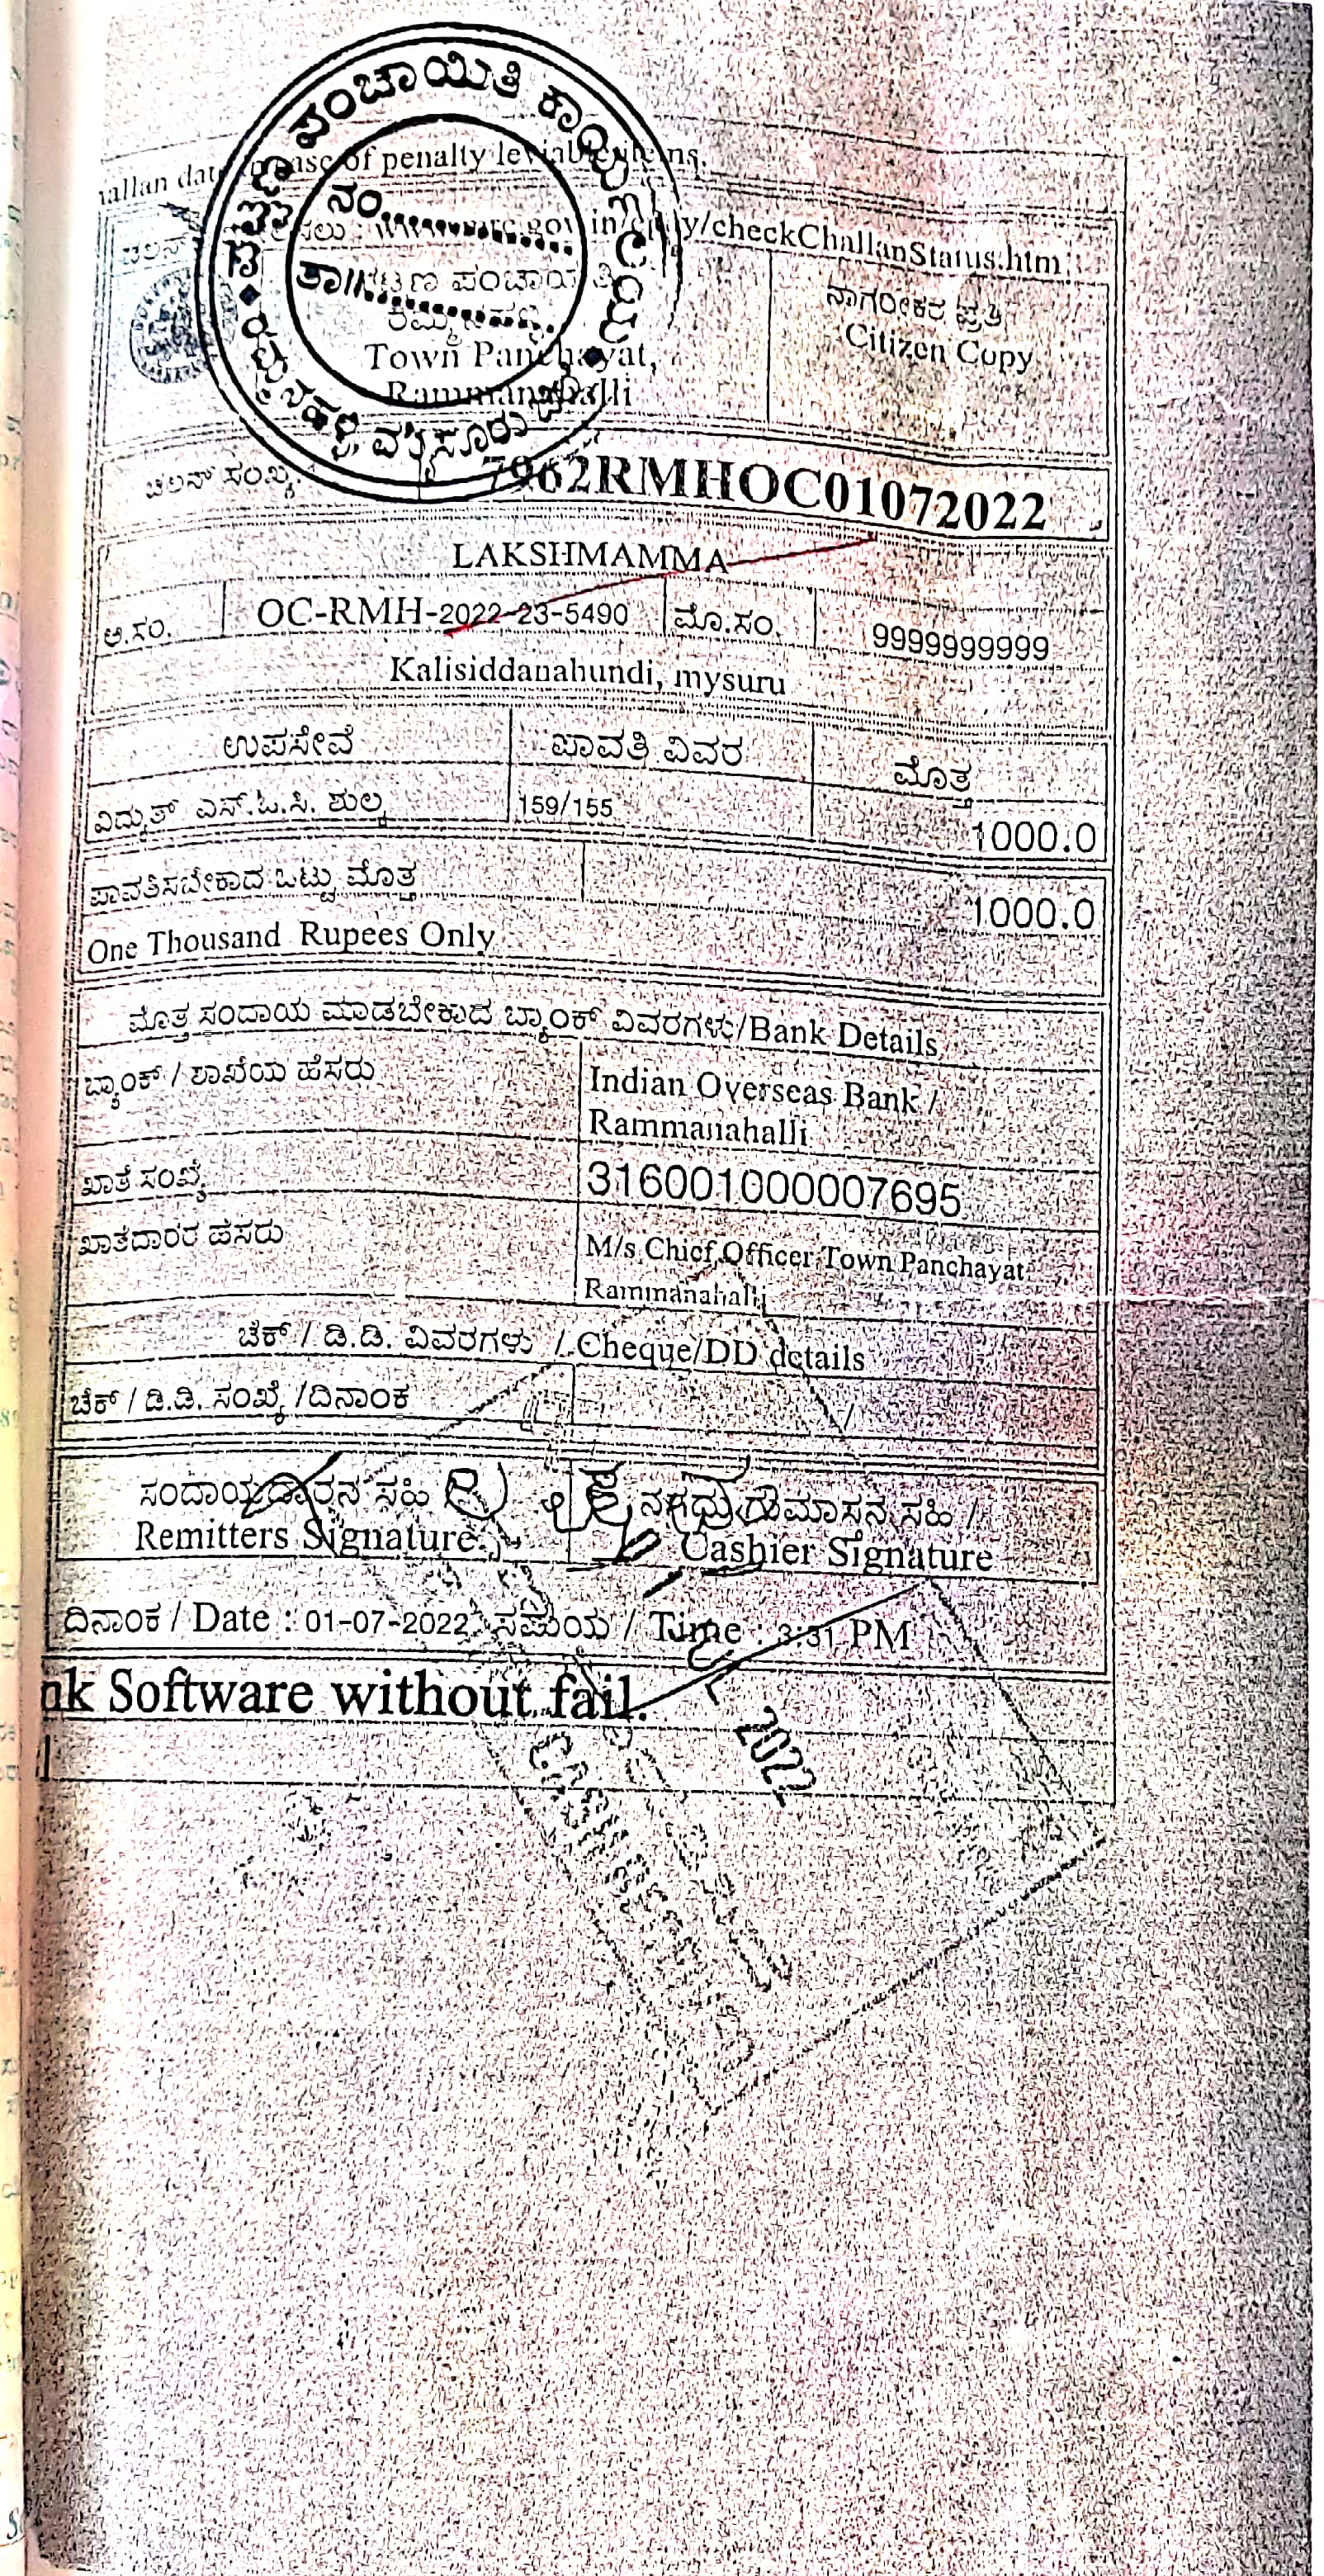 ಪಂಚಾಯಿತಿ
of penalty
ನಂ
y/checkChallanStatus.htm
ನಾಗರೀಕರ ಪ್ರತಿ
Citizen Copy
Town Panchayat,
Rammanahalli
ಚಲನ್ ಸಂಖ್ಯೆ
7962RMHOC01072022
LAKSHMAMMA
ಅ.ಸಂ. OC-RMH-2022-23-5490 ಮೊ.ಸಂ. 9999999999
Kalisiddanahundi, mysuru
ಉಪಸೇವೆ ಪಾವತಿ ವಿವರ ಮೊತ್ತ
ವಿದ್ಯುತ್ ಎನ್.ಓ.ಸಿ. ಶುಲ್ಕ 159/155 1000.0
ಪಾವತಿಸಬೇಕಾದ ಒಟ್ಟು ಮೊತ್ತ 1000.0
One Thousand Rupees Only
ಮೊತ್ತ ಸಂದಾಯ ಮಾಡಬೇಕಾದ ಬ್ಯಾಂಕ್ ವಿವರಗಳು/Bank Details
ಬ್ಯಾಂಕ್ / ಶಾಖೆಯ ಹೆಸರು Indian Overseas Bank /
Rammanahalli
ಖಾತೆ ಸಂಖ್ಯೆ 316001000007695
ಖಾತೆದಾರರ ಹೆಸರು M/s Chief Officer Town Panchayat
Rammanahalli
ಚೆಕ್ / ಡಿ.ಡಿ. ವಿವರಗಳು / Cheque/DD details
ಚೆಕ್ / ಡಿ.ಡಿ. ಸಂಖ್ಯೆ /ದಿನಾಂಕ /
ಸಂದಾಯದಾರನ ಸಹಿ ನಗದು ಗುಮಾಸ್ತನ ಸಹಿ /
Remitters Signature Cashier Signature
ದಿನಾಂಕ / Date : 01-07-2022 ಸಮಯ / Time : 3:31 PM
nk Software without fail.
2022